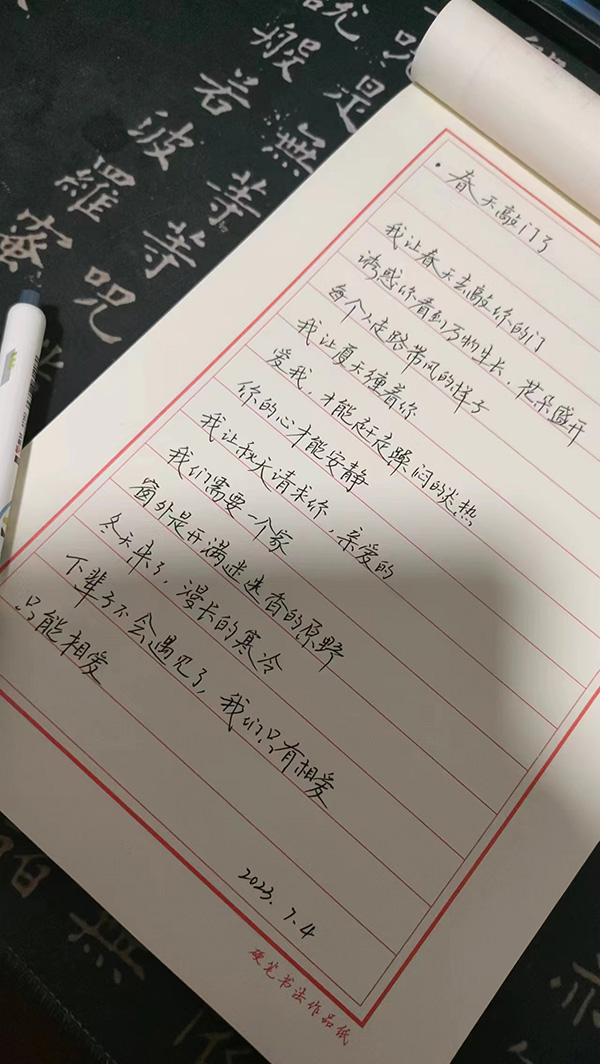 · 春天敲门了
我让春天去敲你的门
诱惑你看到万物生长，花朵盛开
每个人走路带风的样子
我让夏天缠着你
爱我，才能赶走躁闷的炎热
你的心才能安静
我让秋天请求你，亲爱的
我们需要一个家
窗外是开满迷迭香的原野
冬天来了，漫长的寒冷
下辈子不会遇见了，我们只有相爱
只能相爱
2023.7.4
硬笔书法作品纸
说呪
般是無
若
波等等
羅
蜜呪
無